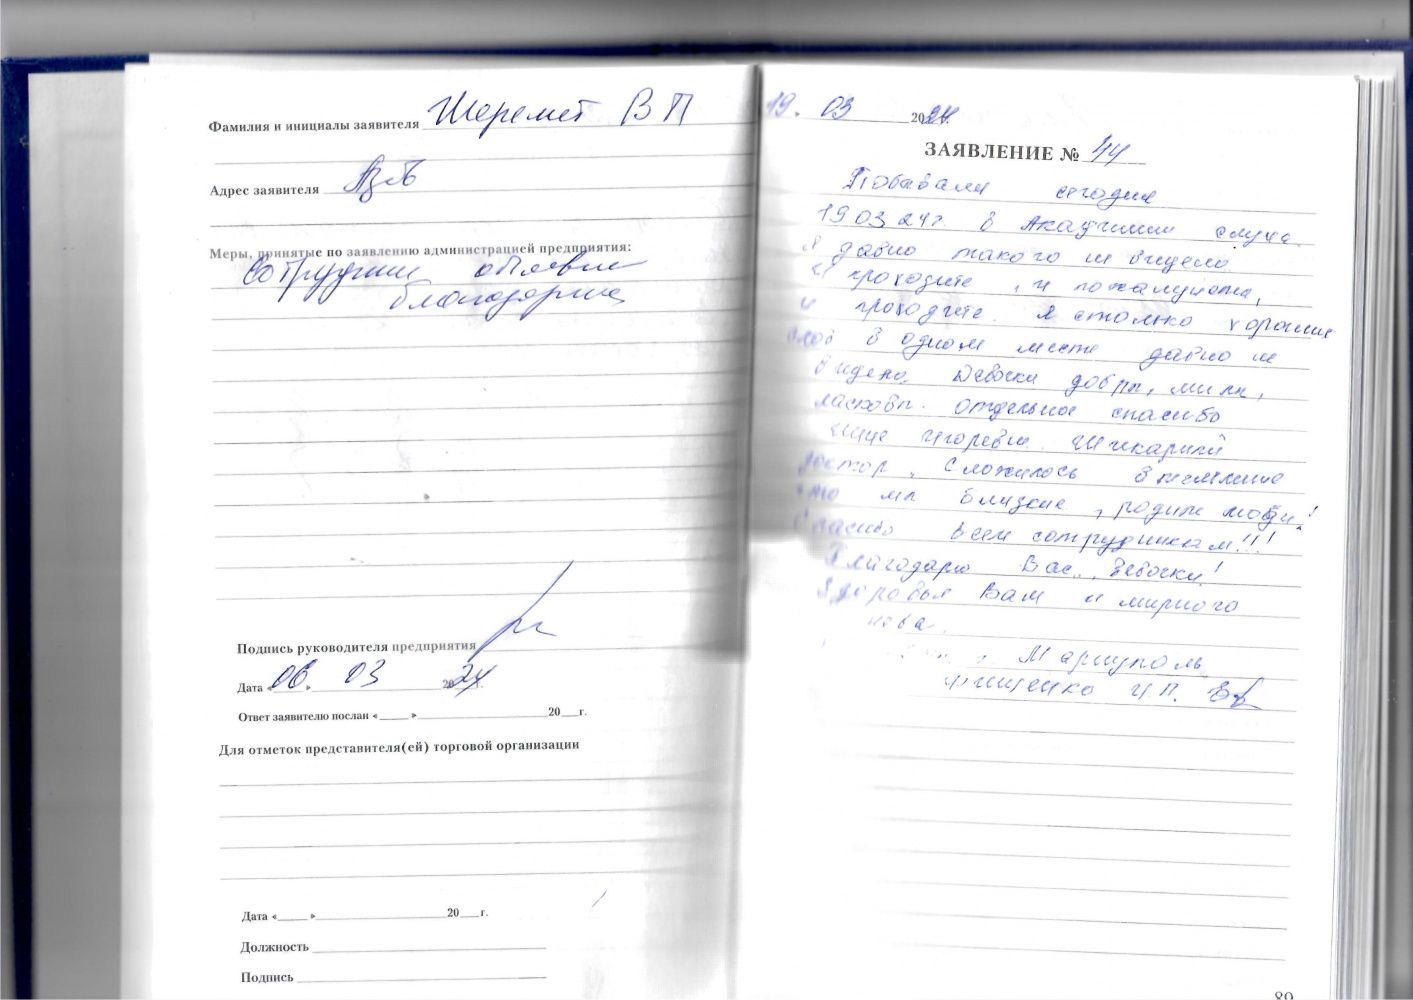 Фамилия и инициалы заявителя Шеремет В П
Адрес заявителя
Меры, принятые по заявлению администрацией предприятия:
благодарн
Подпись руководителя предприятия
Дата « 06 » 03 2024 г.
Ответ заявителю послан «___» ___ 20__ г.
Для отметок представителя(ей) торговой организации
Дата «___» ___ 20__ г.
Должность
Подпись
19. 03 2024 г.
ЗАЯВЛЕНИЕ № 44
Побывали сегодня
19 03 24г. в Академии слуха.
Я давно такого не видела
проходите, и пожалуйста,
и проходите. Я столько хороших
слов в одном месте давно не
видела. Девочки добры, милы,
ласковы. Отдельное спасибо
Игоревне. Шикарный
доктор. Сложилось впечатление
что мы близкие, родные
Спасибо всем сотрудникам!!!
Благодарю Вас, девочки!
Здоровья Вам и мирного
неба.
Мариуполь
И.П.
89